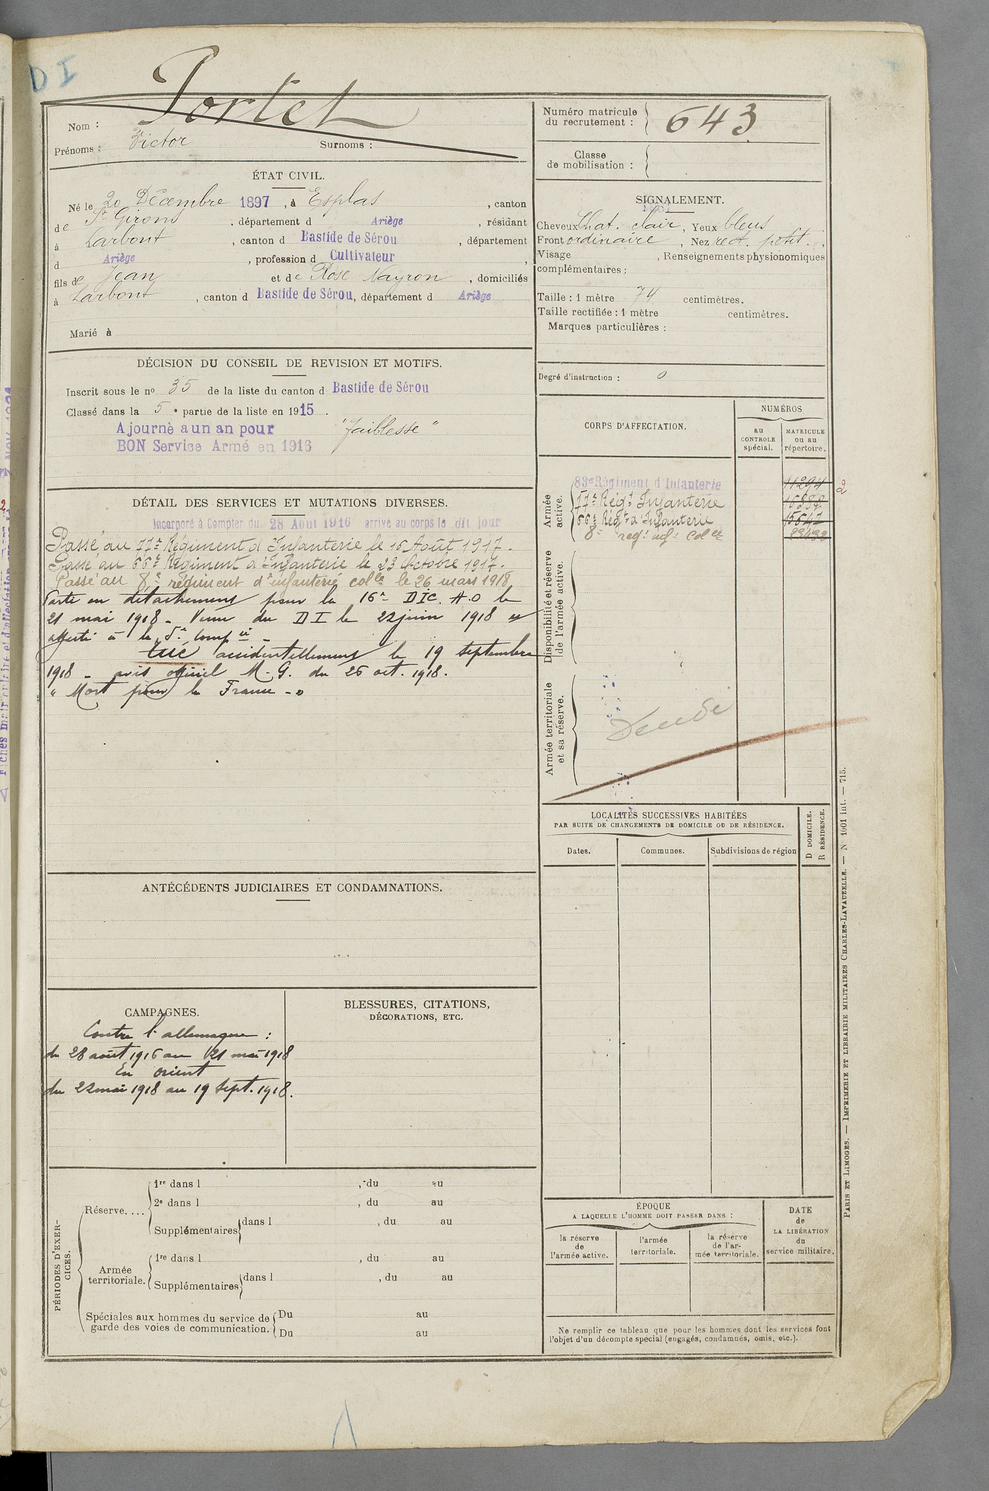 D I
Portet
Nom :
Prénoms : Victor Surnoms :
Numéro matricule du recrutement : 643
Classe de mobilisation :
ÉTAT CIVIL.
Né le 20 Décembre 1897, à Esplas, canton
de St Girons, département d Ariège, résidant
à Larbont, canton d Bastide de Sérou, département
d Ariège, profession d Cultivateur,
fils de Jean et de Rose Nayron, domiciliés
à Larbont, canton d Bastide de Sérou, département d Ariège
Marié à
SIGNALEMENT.
Cheveux Chat. clair, Yeux bleus
Front ordinaire, Nez rect. petit.
Visage , Renseignements physionomiques
complémentaires :
Taille : 1 mètre 74 centimètres.
Taille rectifiée : 1 mètre centimètres.
Marques particulières :
Degré d'instruction : 0
DÉCISION DU CONSEIL DE REVISION ET MOTIFS.
Inscrit sous le no 35 de la liste du canton d Bastide de Sérou
Classé dans la 5e partie de la liste en 1915.
Ajourné a un an pour "faiblesse"
BON Service Armé en 1916
CORPS D'AFFECTATION.
NUMÉROS
au CONTROLE spécial.
MATRICULE ou au répertoire.
Armée active.
83e Régiment d'Infanterie 11294
77e Régt Infanterie
66e Régt d'Infanterie 15647
8e regt inf. colle
Disponibilité et réserve de l'armée active.
Armée territoriale et sa réserve.
DÉTAIL DES SERVICES ET MUTATIONS DIVERSES.
Incorporé à Compter du 28 Août 1916 arrivé au corps le dit jour
Passé au 77e Régiment d'Infanterie le 16 Août 1917.
Passé au 66e Régiment d'Infanterie le 23 Octobre 1917.
Passé au 8e régiment d'infanterie colle le 26 mars 1918
Parti en détachement pour la 16e DIC. A.O le
21 mai 1918. Venu du D I le 22 juin 1918 et
affecté à la 5e Compie.
tué accidentellement le 19 septembre
1918 - avis officiel M.G. du 26 oct. 1918.
"Mort pour la France"
LOCALITÉS SUCCESSIVES HABITÉES
PAR SUITE DE CHANGEMENTS DE DOMICILE OU DE RÉSIDENCE.
Dates.
Communes.
Subdivisions de région
D DOMICILE.
R RÉSIDENCE.
ANTÉCÉDENTS JUDICIAIRES ET CONDAMNATIONS.
CAMPAGNES.
Contre l'allemagne :
du 28 août 1916 au 21 mai 1918
En orient
du 22 mai 1918 au 19 sept. 1918.
BLESSURES, CITATIONS,
DÉCORATIONS, ETC.
PÉRIODES D'EXERCICES.
Réserve....
1re dans l , du au
2e dans l , du au
Supplémentaires dans l , du au
Armée territoriale.
1re dans l , du au
Supplémentaires dans l , du au
Spéciales aux hommes du service de garde des voies de communication.
Du au
Du au
ÉPOQUE
A LAQUELLE L'HOMME DOIT PASSER DANS :
la réserve de l'armée active.
l'armée territoriale.
la réserve de l'armée territoriale.
DATE de LA LIBÉRATION du service militaire.
Ne remplir ce tableau que pour les hommes dont les services font
l'objet d'un décompte spécial (engagés, condamnés, omis, etc.).
PARIS ET LIMOGES. — IMPRIMERIE ET LIBRAIRIE MILITAIRES CHARLES-LAVAUZELLE. — N° 1001 int. — 715.